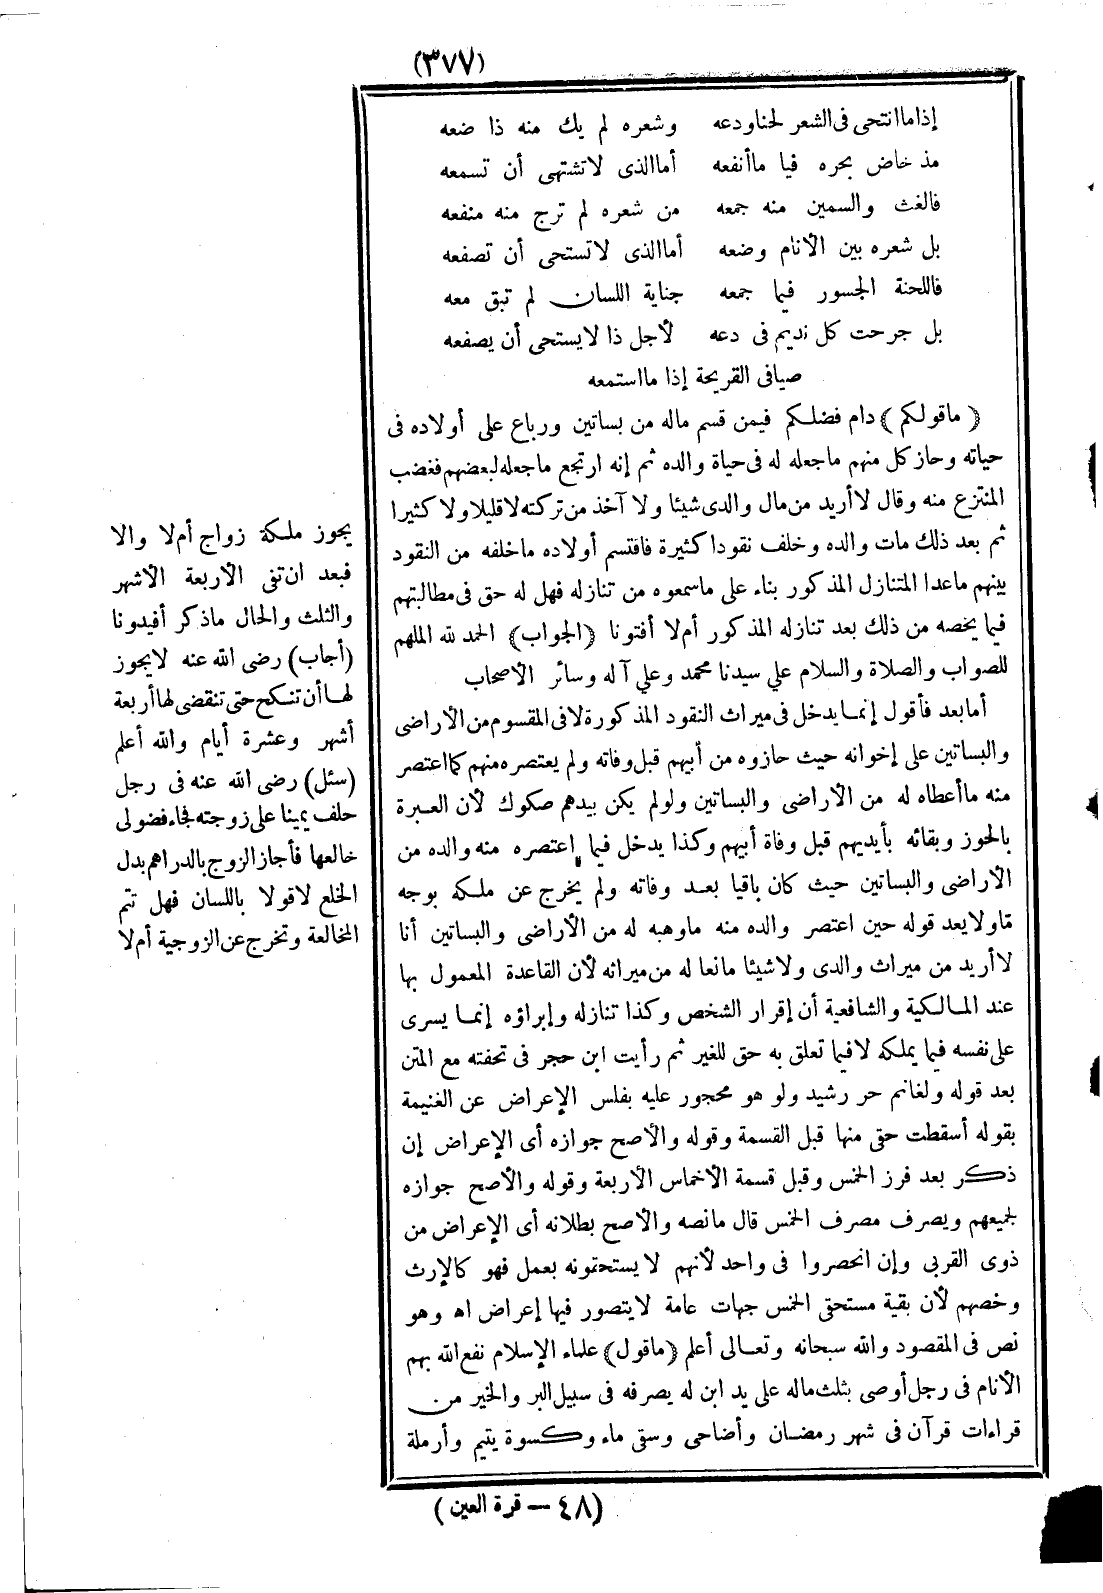 (٣٧٧)
إذاما انتحى فى الشعر لحنا ودعه وشعره لم يك منه ذا ضعه
مذ خاض بحره فيا ما أنفعه أما الذى لا تشتهى أن تسمعه
فالغث والسمين منه جمعه من شعره لم ترج منه منفعه
بل شعره بين الأنام وضعه أما الذى لا تستحى أن تصفعه
فاللحنة الجسور فيما جمعه جناية اللسان لم تبق معه
بل جرحت كل نديم فى دعه لأجل ذا لا يستحى أن يصفعه
صيافى القريحة إذا ما استمعه
(ماقولكم) دام فضلكم فيمن قسم ماله من بساتين ورباع على أولاده فى
حياته وحاز كل منهم ماجعله له فى حياة والده ثم إنه ارتجع ماجعله لبعضهم فغضب
المنتزع منه وقال لا أريد من مال والدى شيئا ولا آخذ من تركته لا قليلا ولا كثيرا
ثم بعد ذلك مات والده وخلف نقودا كثيرة فاقتسم أولاده ماخلفه من النقود
بينهم ماعدا المتنازل المذكور بناء على ماسمعوه من تنازله فهل له حق فى مطالبتهم
فيما يخصه من ذلك بعد تنازله المذكور أم لا أفتونا (الجواب) الحمد لله الملهم
للصواب والصلاة والسلام علي سيدنا محمد وعلي آله وسائر الأصحاب
أما بعد فأقول إنما يدخل فى ميراث النقود المذكورة لا فى المقسوم من الأراضى
والبساتين على إخوانه حيث حازوه من أبيهم قبل وفاته ولم يعتصره منهم كما اعتصر
منه ما أعطاه له من الأراضى والبساتين ولو لم يكن بيدهم صكوك لأن العبرة
بالحوز وبقائه بأيديهم قبل وفاة أبيهم وكذا يدخل فيما اعتصره منه والده من
الأراضى والبساتين حيث كان باقيا بعد وفاته ولم يخرج عن ملكه بوجه
مّا ولا يعد قوله حين اعتصر والده منه ماوهبه له من الأراضى والبساتين أنا
لا أريد من ميراث والدى ولا شيئا مانعا له من ميراثه لأن القاعدة المعمول بها
عند المالكية والشافعية أن إقرار الشخص وكذا تنازله وإبراؤه إنما يسرى
على نفسه فيما يملكه لا فيما تعلق به حق للغير ثم رأيت ابن حجر فى تحفته مع المتن
بعد قوله ولغانم حر رشيد ولو هو محجور عليه بفلس الإعراض عن الغنيمة
بقوله أسقطت حقى منها قبل القسمة وقوله والأصح جوازه أى الإعراض إن
ذكر بعد فرز الخمس وقبل قسمة الأخماس الأربعة وقوله والأصح جوازه
لجميعهم ويصرف مصرف الخمس قال مانصه والأصح بطلانه أى الإعراض من
ذوى القربى وإن انحصروا فى واحد لأنهم لا يستحقونه بعمل فهو كالإرث
وخصهم لأن بقية مستحق الخمس جهات عامة لا يتصور فيها إعراض اه وهو
نص فى المقصود والله سبحانه وتعالى أعلم (ماقول) علماء الإسلام نفع الله بهم
الأنام فى رجل أوصى بثلث ماله على يد ابن له يصرفه فى سبيل البر والخير من
قراءات قرآن فى شهر رمضان وأضاحى وسقى ماء وكسوة يتيم وأرملة
يجوز ملكة زواج أم لا والا
فبعد ان تفى الأربعة الأشهر
والثلث والحال ماذكر أفيدونا
(أجاب) رضى الله عنه لا يجوز
لها أن تنكح حتى تنقضى لها أربعة
أشهر وعشرة أيام والله أعلم
(سئل) رضى الله عنه فى رجل
حلف يمينا على زوجته فجاء فضولى
خالعها فأجاز الزوج بالدراهم بدل
الخلع لا قولا باللسان فهل تتم
المخالعة وتخرج عن الزوجية أم لا
(٤٨ – قرة العين)